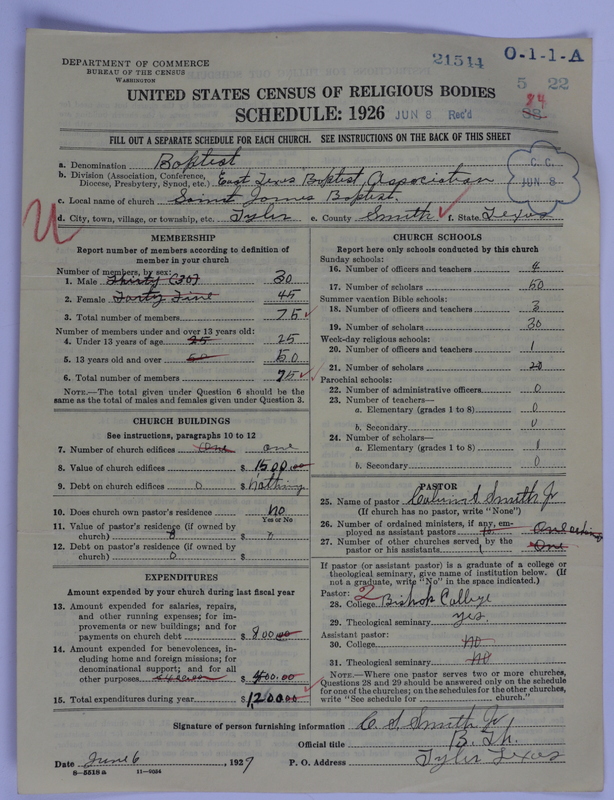 DEPARTMENT OF COMMERCE
BUREAU OF THE CENSUS
WASHINGTON
21514
O-1-1-A
5 22
84
88
UNITED STATES CENSUS OF RELIGIOUS BODIES
SCHEDULE: 1926 JUN 8 Rec'd
FILL OUT A SEPARATE SCHEDULE FOR EACH CHURCH. SEE INSTRUCTIONS ON THE BACK OF THIS SHEET
C. C.
JUN 8
a. Denomination Baptist
b. Division (Association, Conference, Diocese, Presbytery, Synod, etc.) East Texas Baptist Association
c. Local name of church Saint James Baptist.
d. City, town, village, or township, etc. Tyler e. County Smith f. State Texas
MEMBERSHIP
Report number of members according to definition of
member in your church
Number of members, by sex:
1. Male Thirty (30) 30
2. Female Forty Five 45
3. Total number of members 75
Number of members under and over 13 years old:
4. Under 13 years of age 25 25
5. 13 years old and over 50 50
6. Total number of members 75
NOTE.—The total given under Question 6 should be
same as the total of males and females given under Question 3.
CHURCH BUILDINGS
See instructions, paragraphs 10 to 12
7. Number of church edifices One one
8. Value of church edifices $ 1500.00
9. Debt on church edifices 0 $ Nothing
10. Does church own pastor's residence? No
Yes or No
11. Value of pastor's residence (if owned by
church) 0 $ 0
12. Debt on pastor's residence (if owned by
church) 0 $
EXPENDITURES
Amount expended by your church during last fiscal year
13. Amount expended for salaries, repairs,
and other running expenses; for im-
provements or new buildings; and for
payments on church debt $ 800.00
14. Amount expended for benevolences, in-
cluding home and foreign missions; for
denominational support; and for all
other purposes $ 400.00
15. Total expenditures during year $ 1200.00
CHURCH SCHOOLS
Report here only schools conducted by this church
Sunday schools:
16. Number of officers and teachers 4
17. Number of scholars 50
Summer vacation Bible schools:
18. Number of officers and teachers 3
19. Number of scholars 30
Week-day religious schools:
20. Number of officers and teachers 1
21. Number of scholars 20
Parochial schools:
22. Number of administrative officers 0
23. Number of teachers—
a. Elementary (grades 1 to 8) 0
b. Secondary 0
24. Number of scholars—
a. Elementary (grades 1 to 8)
b. Secondary 0
PASTOR
25. Name of pastor Smith Jr
(If church has no pastor, write "None")
26. Number of ordained ministers, if any, em-
ployed as assistant pastors
27. Number of other churches served by the
pastor or his assistants 1 One
If pastor (or assistant pastor) is a graduate of a college or
theological seminary, give name of institution below. (If
not a graduate, write "No" in the space indicated.)
Pastor: 2
28. College Bishop College
29. Theological seminary yes.
Assistant pastor:
30. College No
31. Theological seminary No
NOTE.—Where one pastor serves two or more churches,
Questions 28 and 29 should be answered only on the schedule
for one of the churches; on the schedules for the other churches,
write "See schedule for church."
Signature of person furnishing information C. S. Smith Jr
Official title B. Th.
Date June 6, 1927 P. O. Address Tyler Texas
8—5518 a 11—9054